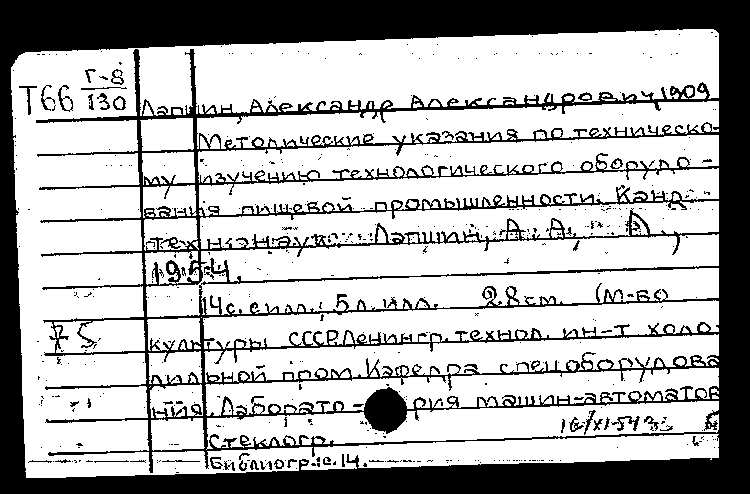 Т66 Г-8
130
Лапшин, Александр Александрович, 1909
Методические указания по техническо-
му изучению технологического оборудо-
вания пищевой промышленности. Канд.
техн. наук Лапшин, А. А., Л.,
1954.
14с. с илл.; 5 л. илл. 28 см. (М-во
культуры СССР. Ленингр. технол. ин-т холо-
дильной пром. Кафедра спецоборудова
ния. Лаборато-рия машин-автоматов
Стеклогр.
Библиогр.: с. 14.